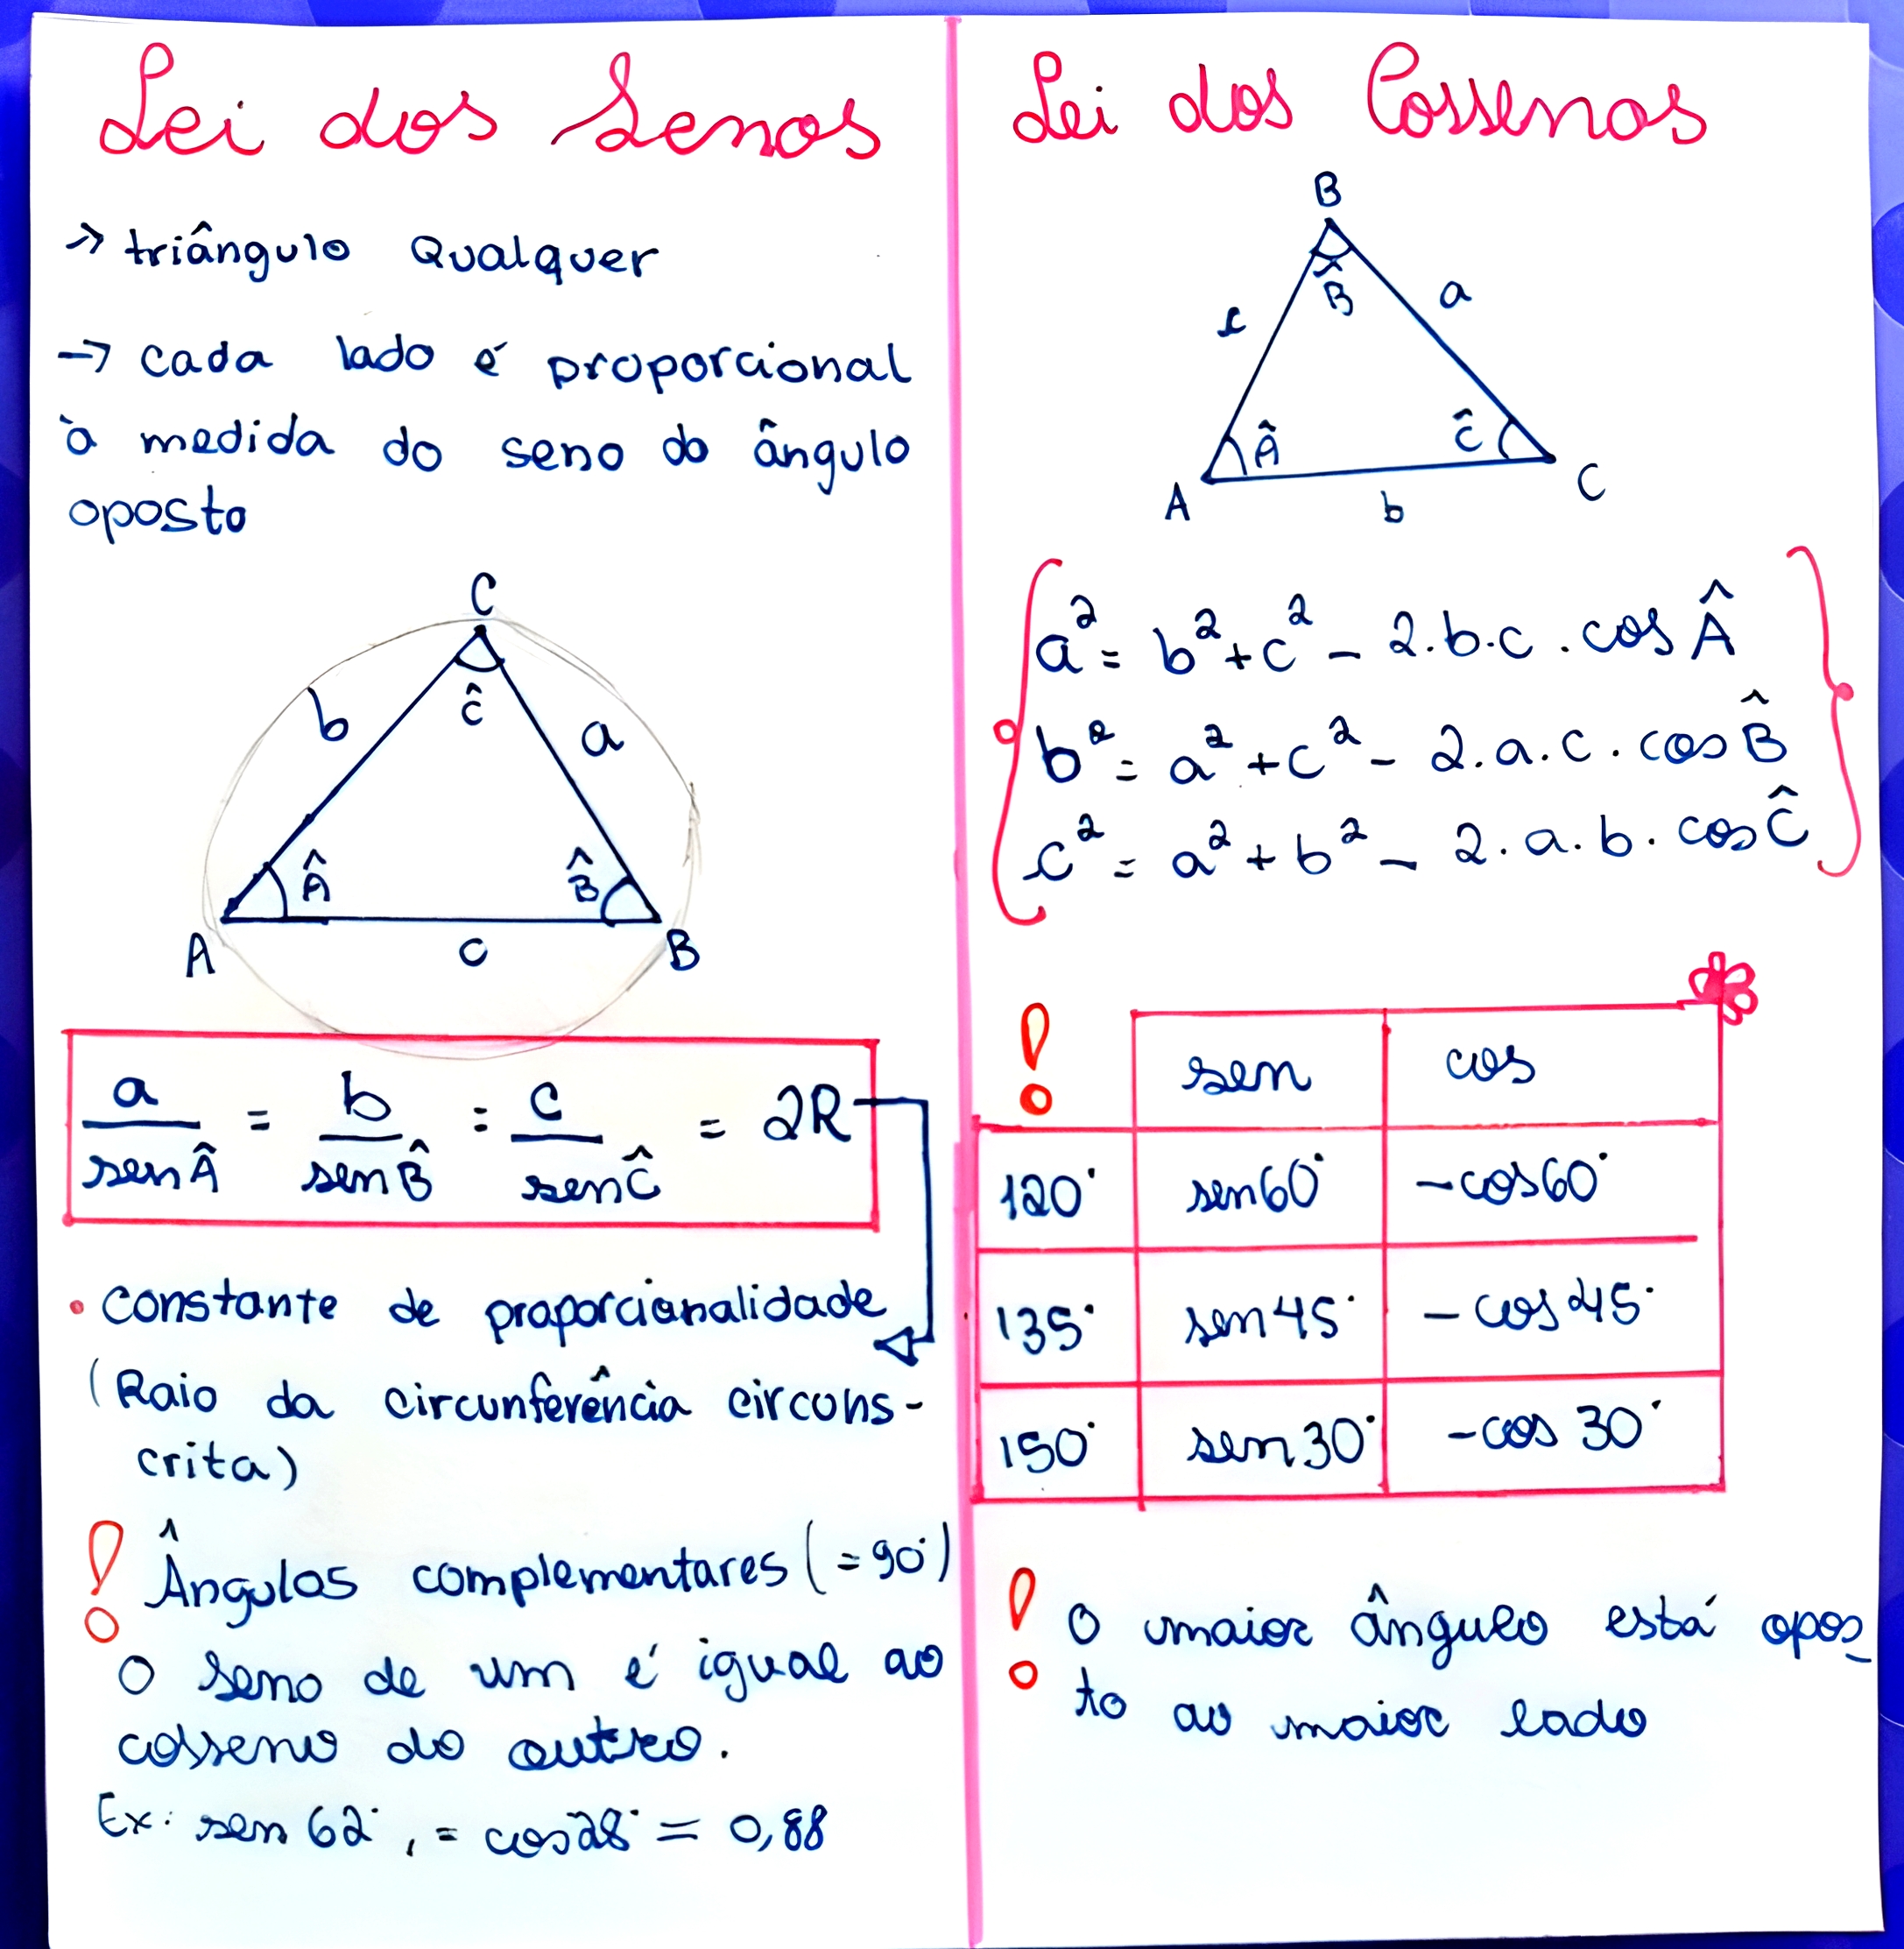 Lei dos Senos
→ triângulo qualquer
→ cada lado é proporcional
à medida do seno do ângulo
oposto
C
b
Ĉ
a
Â
B̂
A
c
B
a/sen = b/senB̂ = c/senĈ = 2R
• constante de proporcionalidade
(Raio da circunferência circons-
crita)
! Ângulos complementares (=90°)
O seno de um é igual ao
cosseno do outro.
Ex: sen 62°, = cos28° = 0,88
Lei dos Cossenos
B
B̂
a
c
Â
Ĉ
A
b
C
a² = b² + c² - 2.b.c . cos Â
b² = a² + c² - 2.a.c . cos B̂
c² = a² + b² - 2.a.b. cos Ĉ
!
sen cos
120° sen60° -cos60°
135° sen45° -cos45°
150° sen30° -cos 30°
! O maior ângulo está opos
to ao maior lado